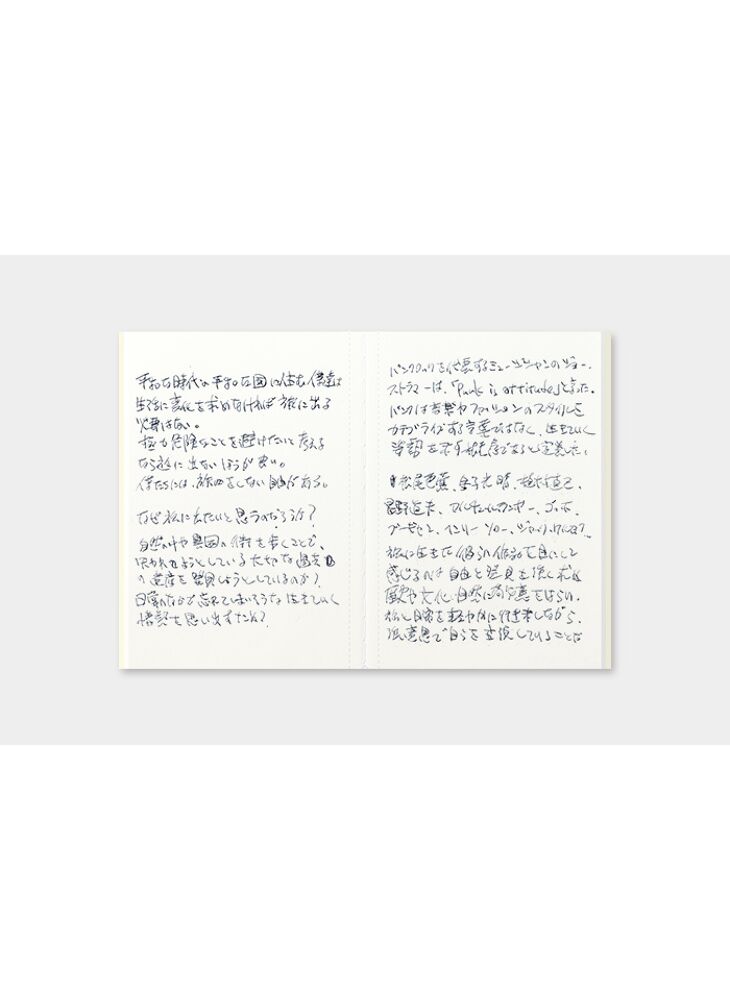 平和な時代の平和な国に住む僕達は
生活に変化を求めなければ旅に出る
必要はない。
極力危険なことを避けたいと考える
なら旅に出ないほうが良い。
僕たちには、旅をしない自由がある。
なぜ旅に出たいと思うのだろうか?
自然の中や異国の街を歩くことで、
失われようとしている大切な過去
の遺産を発見しようとしているのか?
日常のなかで忘れてしまいそうな生きていく
姿勢を思い出すため?
パンクロックを代表するミュージシャンのジョー・
ストラマーは、「Punk is attitude」と言った。
パンクは音楽やファッションのスタイルを
カテゴライズする言葉ではなく、生きていく
姿勢を示す言葉であると定義した。
松尾芭蕉、金子光晴、植村直己、
星野道夫、ゴッホ、
ゴーギャン、ヘンリー・ソロー、ジャック・
旅に生きた彼らの作品を目にして
感じるのは自由と発見を強く求め
歴史や文化、自然に敬意をはらい、
旅と日常を軽やかに行き来しながら、
強い意思で自らを変換していること